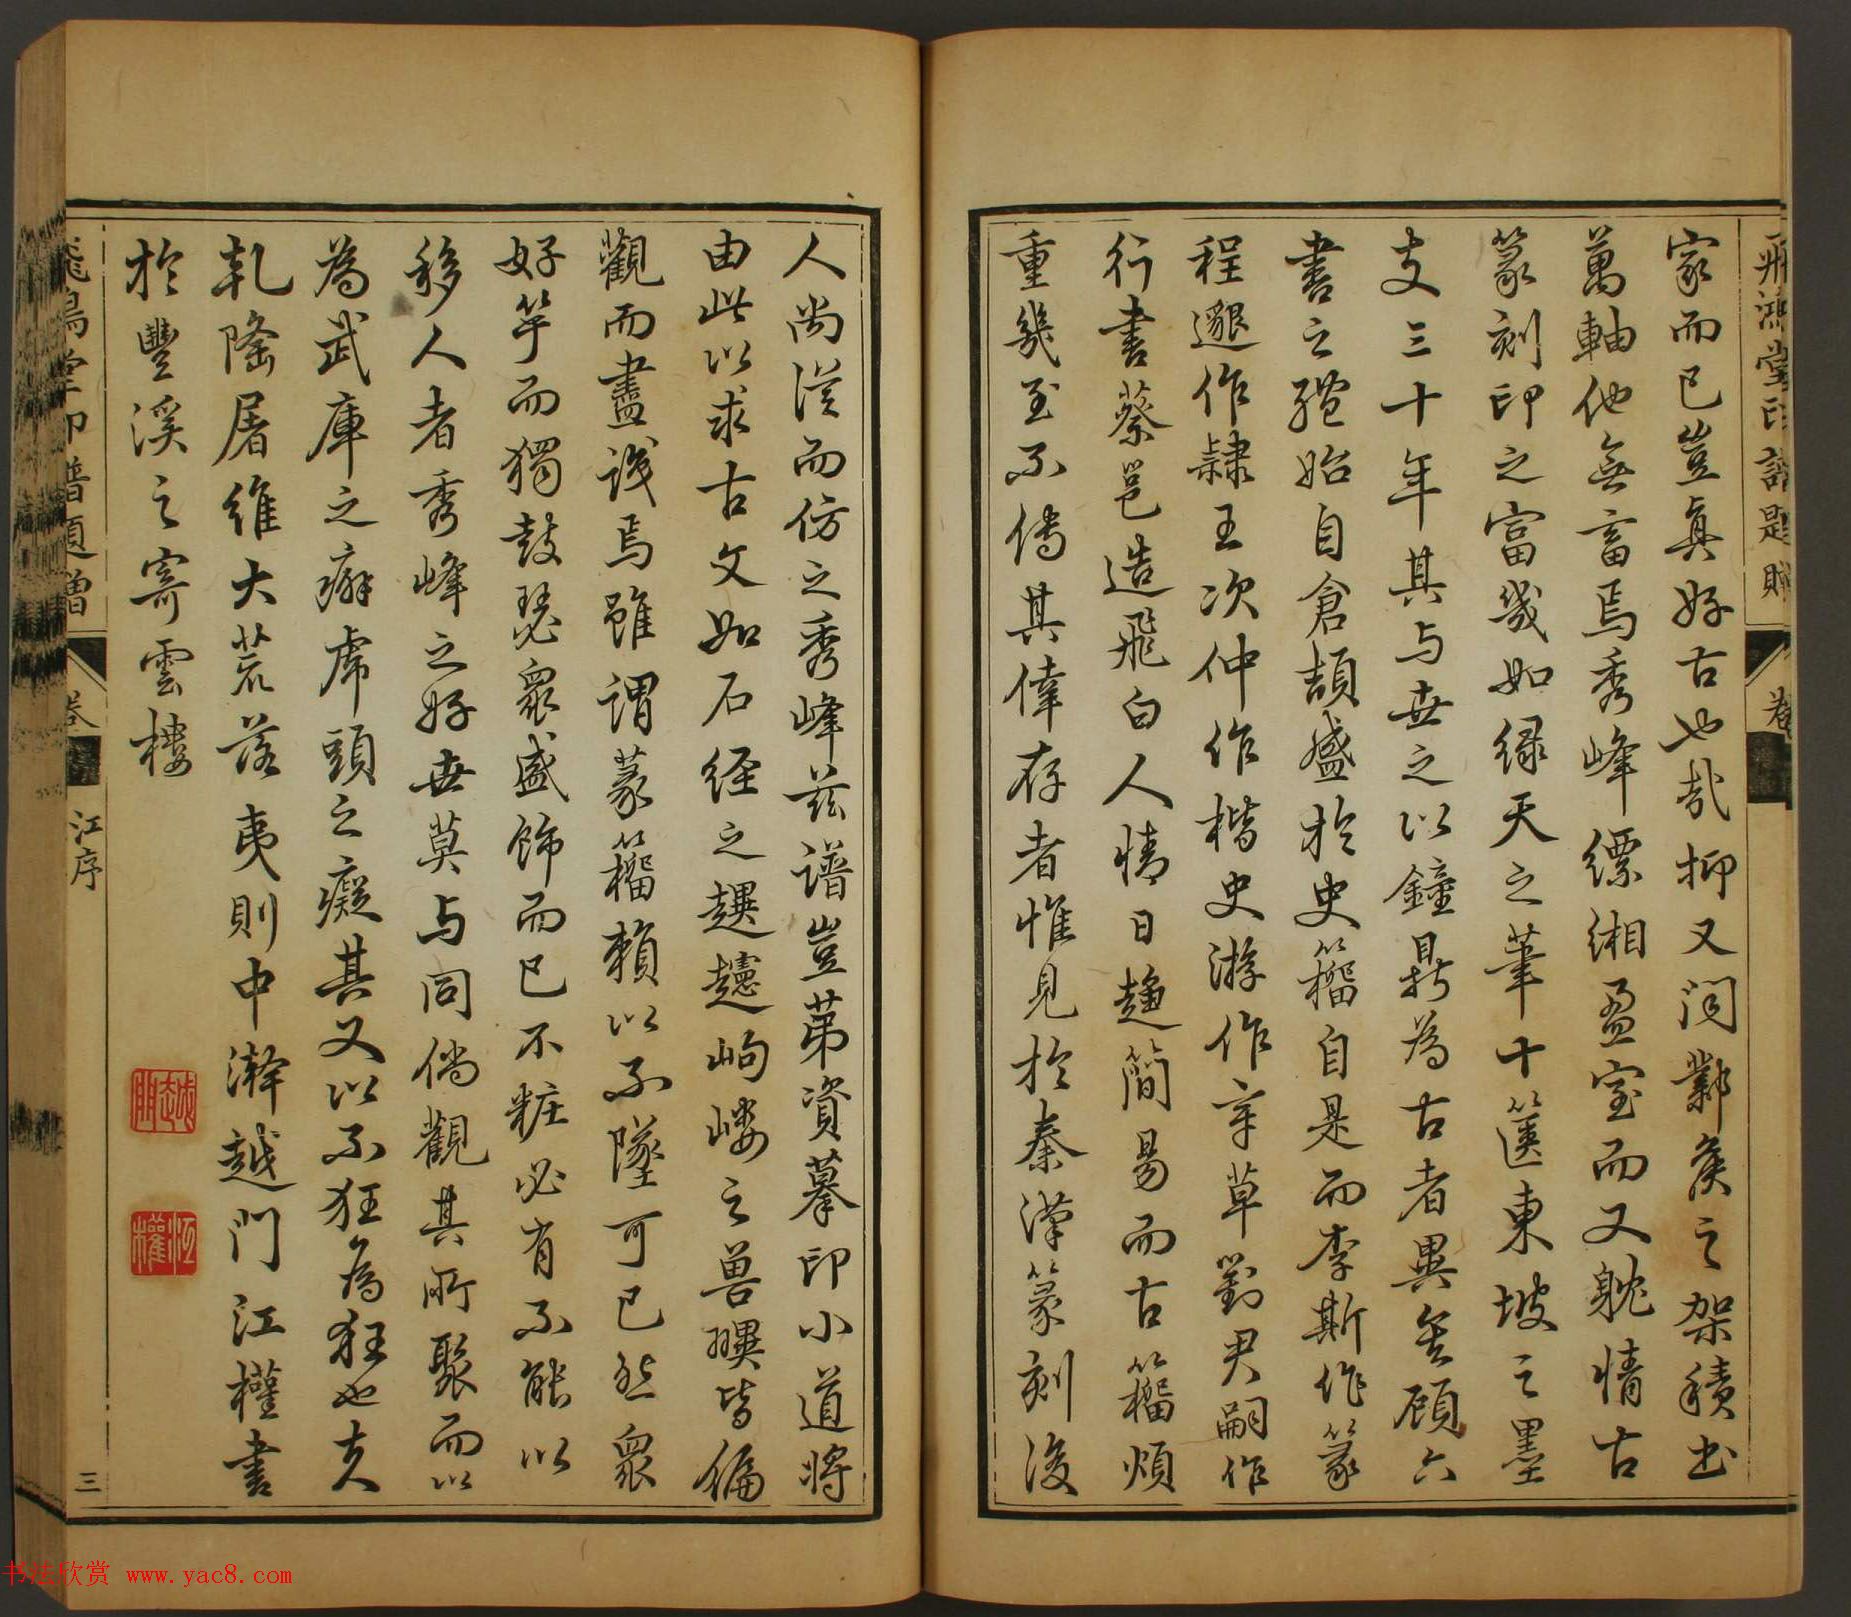 飛鴻堂印譜題贈
卷
家而已豈真好古也哉抑又聞鄴侯之架積書
萬軸他無畜焉秀峰縹緗盈室而又躭情古
篆刻印之富幾如綠天之葉十篋東坡之墨
支三十年其与世之以鐘鼎為古者異矣顧六
書之體始自倉頡盛於史籀自是而李斯作篆
程邈作隸王次仲作楷史游作章草劉君嗣作
行書蔡邕造飛白人情日趨簡易而古籀煩
重幾至不傳其僅存者惟見於秦漢篆刻後
人尚從而仿之秀峰茲譜豈第資摹印小道將
由此以求古文如石經之趯趯岣嶁之兽皆徧
觀而盡識焉雖謂篆籀賴以不墜可已然衆
好竽而獨鼓瑟衆盛飾而已不粧必有不能以
移人者秀峰之好世莫与同倘觀其所聚而以
為武庫之癖虎頭之癡其又以不狂為狂也夫
乾隆屠維大荒落夷則中澣越門江權書
於豐溪之寄雲樓
越門
江權
飛鴻堂印譜題贈
卷
江序
三
书法欣赏 www.yac8.com